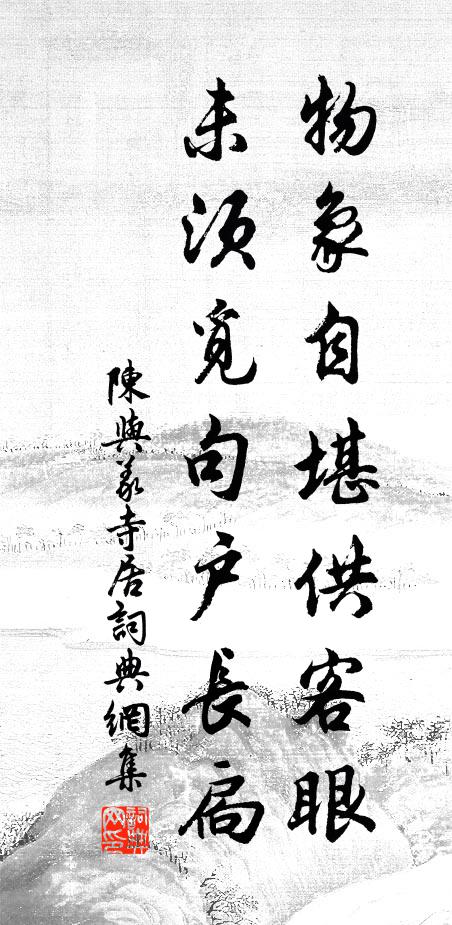 物象自堪供客眼
未須覓句户長扃
陳與義寺居詞典網集